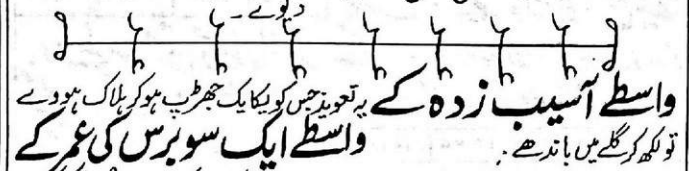 دیوے۔
واسطے آسیب زدہ کے یہ تعویذ جس کو یکایک جھڑپ ہوکر ہلاک ہووے
تو لکھ کر گلے میں باندھے۔ واسطے ایک سو برس کی عمر کے